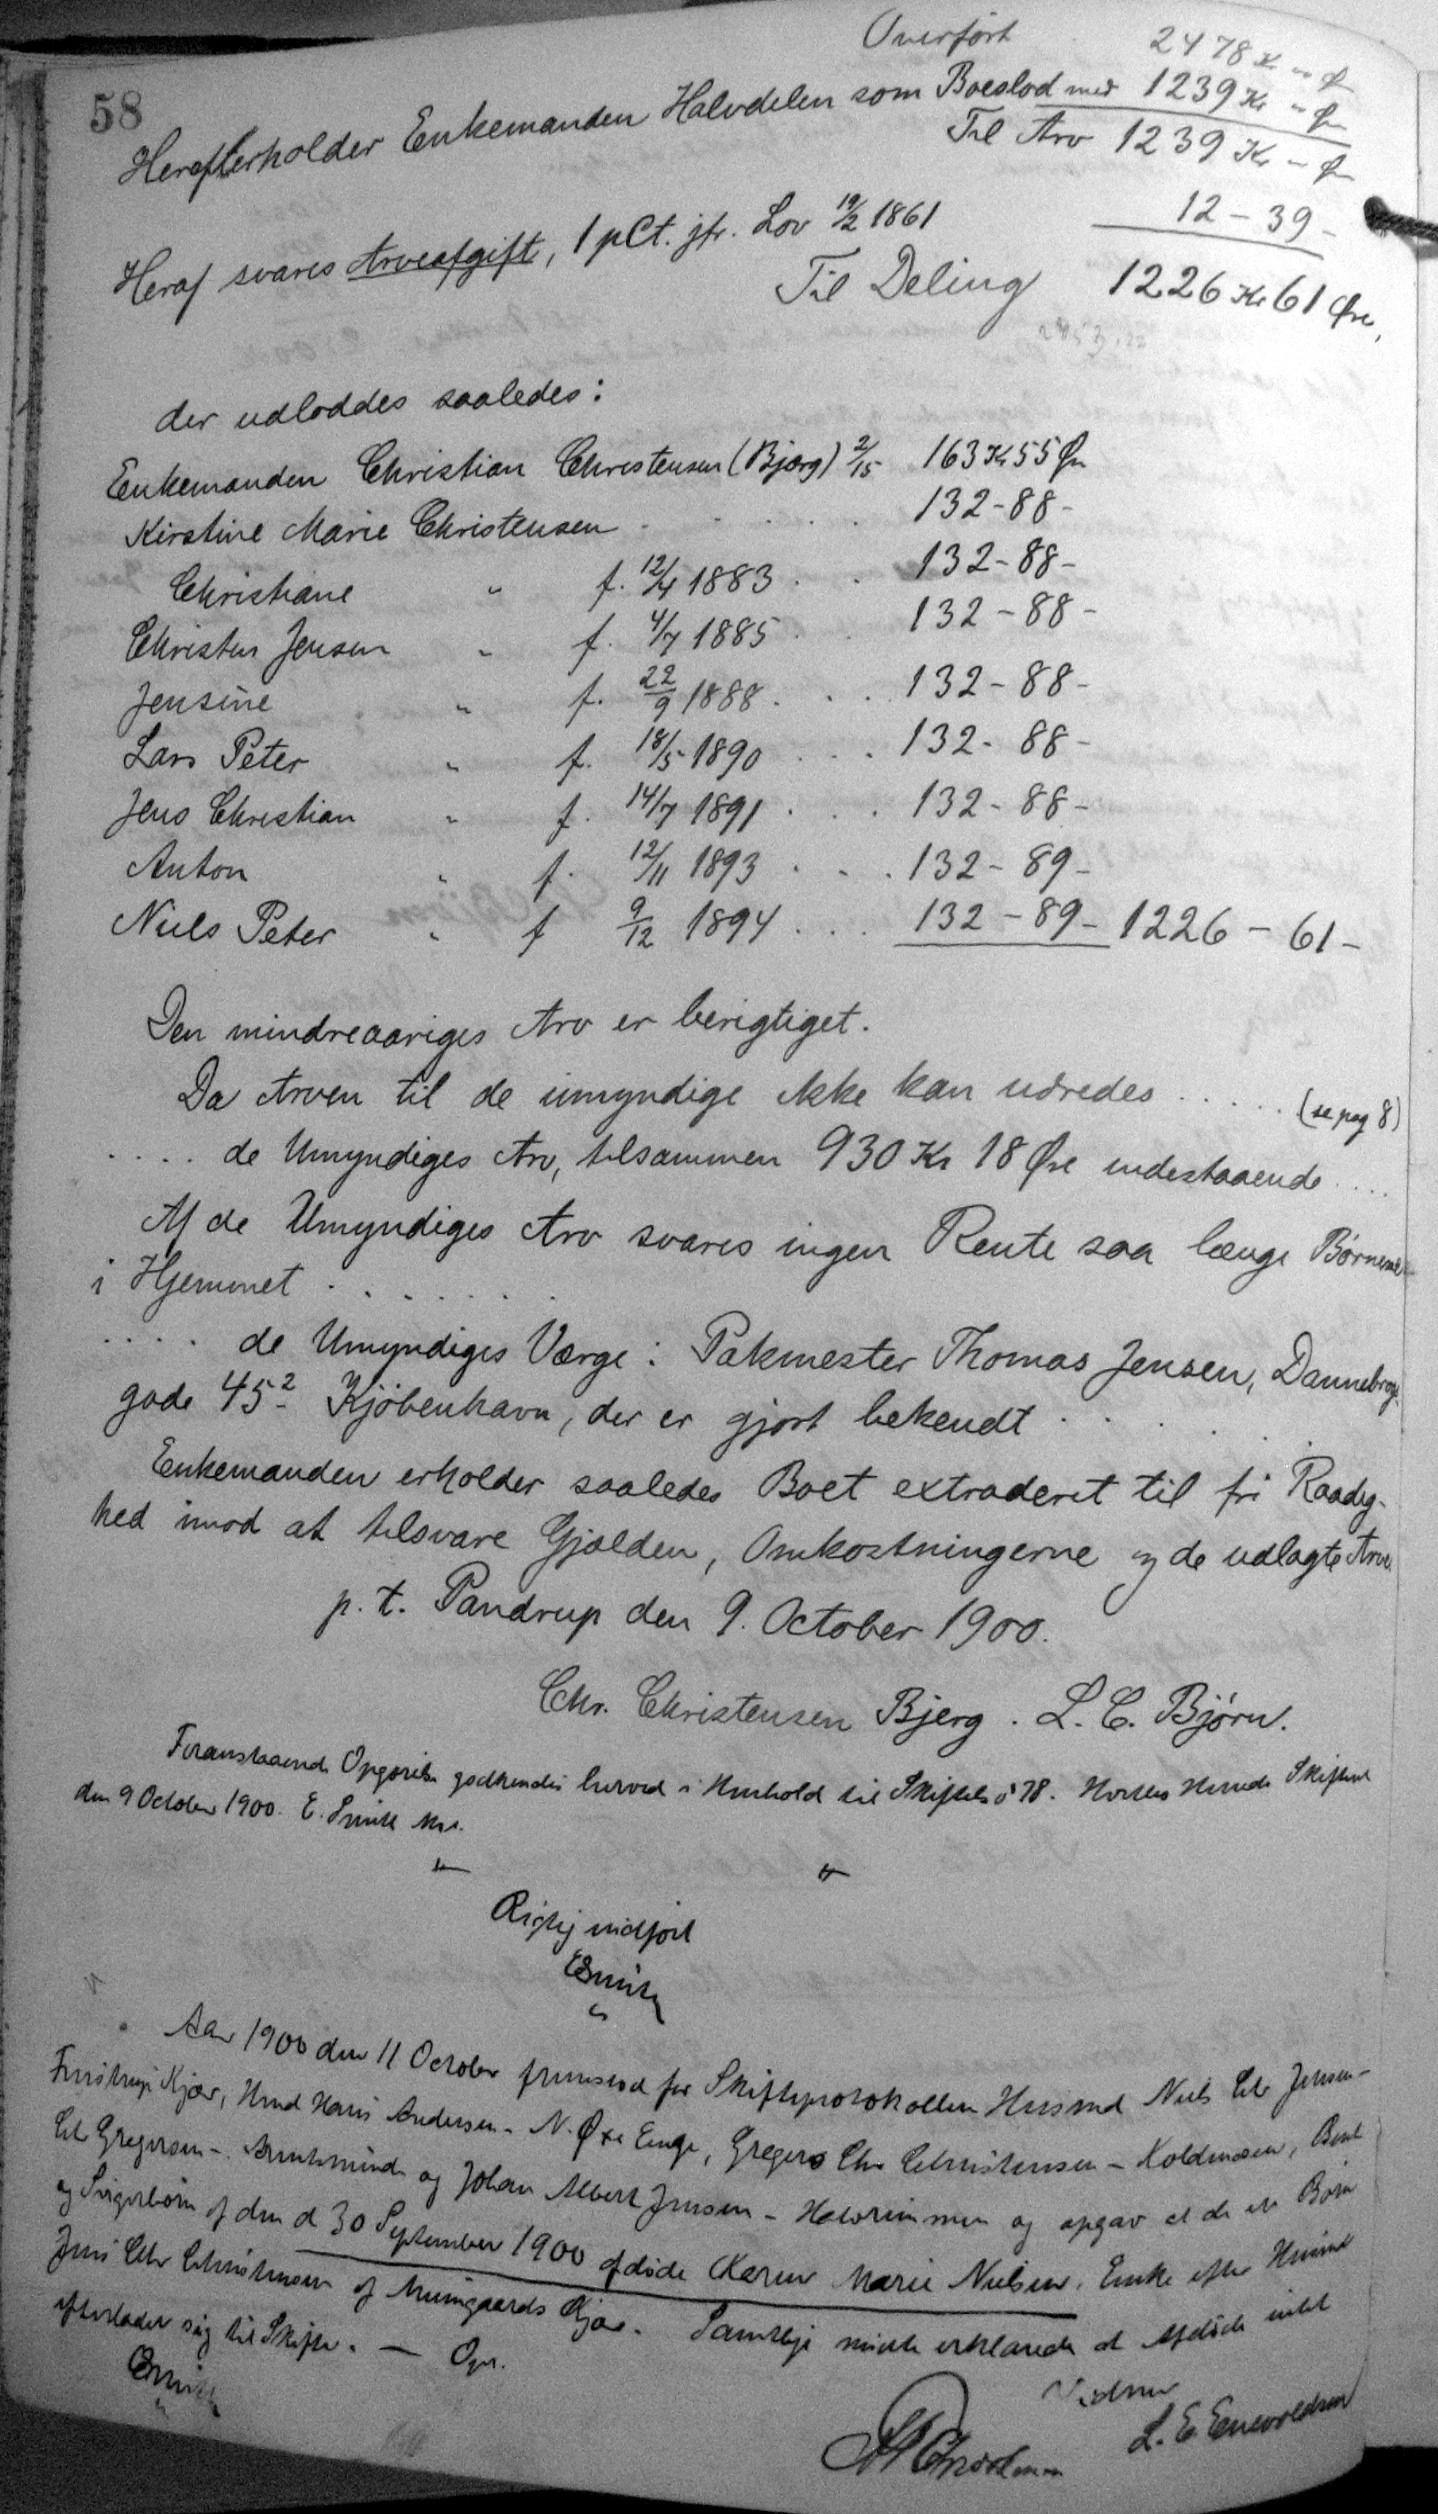 58
Overført 2478 Kr " Ø
Herefter erholder Enkemanden Halvdelen som Boeslod med 1239 Kr " Ør
Til Arv 1239 Kr - Ø
Heraf svares Arveafgift, 1 pCt. jfr. Lov 19/2 1861 12 - 39 -
Til Deling 1226 Kr 61 Øre,
der udloddes saaledes:
Enkemanden Christian Christensen (Bjerg) 2/15 163 Kr 55 Ør
Kirstine Marie Christensen . . . . 132 - 88 -
Christiane " f. 12/4 1883 . . 132 - 88 -
Christen Jensen " f. 4/7 1885 . . 132 - 88 -
Jensine " f. 22/9 1888 . . . 132 - 88 -
Lars Peter " f. 18/5 1890 . . . 132 - 88 -
Jens Christian " f. 14/7 1891 . . . 132 - 88 -
Anton " f. 12/11 1893 . . . 132 - 89 -
Niels Peter " f 9/12 1894 . . . 132 - 89 - 1226 - 61 -
Den mindreaariges Arv er berigtiget.
Da Arven til de umyndige ikke kan udredes . . . . . (se pag 8)
. . . . de Umyndiges Arv, tilsammen 930 Kr 18 Øre indestaaende . . . .
Af de Umyndiges Arv svares ingen Rente saa længe Børnene
i Hjemmet . . . . . . .
. . . . de Umyndiges Værge: Pakmester Thomas Jensen, Dannebrogs-
gade 45² Kjøbenhavn, der er gjort bekendt . . . . .
Enkemanden erholder saaledes Boet extraderet til fri Raadig-
hed imod at tilsvare Gjælden, Omkostningerne og de udlagte Arve
p. t. Pandrup den 9. October 1900.
Chr. Christensen Bjerg. L. C. Bjørn.
Foranstaaende Opgørelse godkendes herved i Henhold til Skiftels § 78. Hvetbo Herreds Skifteret
den 9 October 1900. E. Smith
Rigtig indført
ESmith
Aar 1900 den 11 October fremstod for Skifteprotokollen Husmd Niels Chr Jensen -
Kjær, Hmd Hans Andersen - N. Øxe Enge, Gregers Chr Christensen - Koldmosen, Bent
Chr Gregersen - og Johan Albert Jensen - Halvrimmen og opgav at de ere Børn
og Svigerbørn af den d 30 September 1900 afdøde Karen Marie Nielsen, Enke efter Husmd
Jens Chr Christensen af Kjær. Samtlige mødte erklærede at Afdøde intet
efterlader sig til Skifte. — Opl.
ESmith
Vidner
L. E Enevoldsen